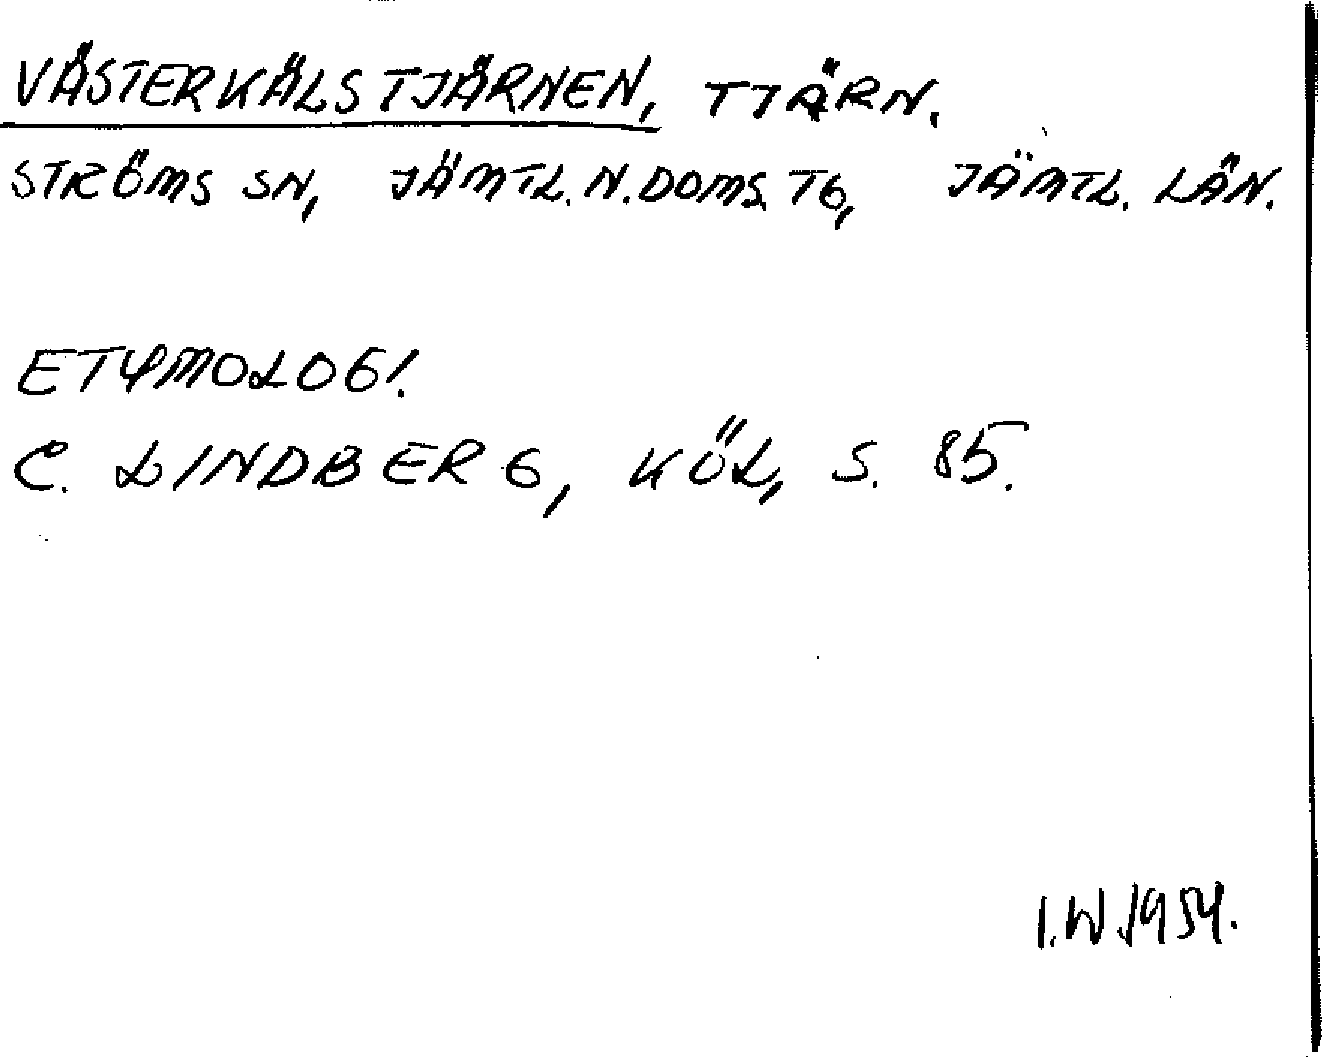 VÄSTERKÄLSTJÄRNEN, TJÄRN.
STRÖMS SN, JÄMTL. N. DOMS. TG, JÄMTL. LÄN.
ETYMOLOGI.
C. LINDBERG, KÖL, S. 85.
I.W. 1954.